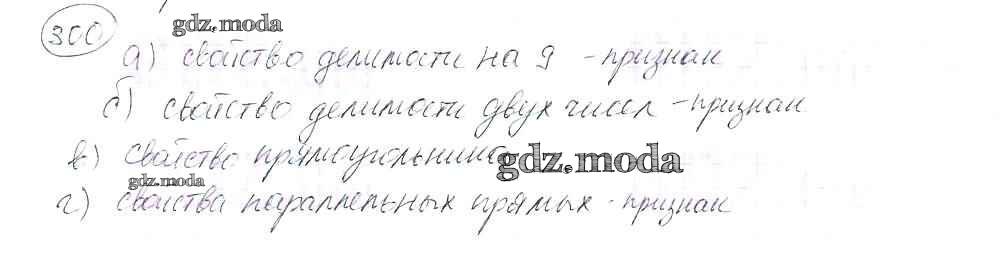 300
gdz.moda
а) свойство делимости на 9 - признак
б) свойство делимости двух чисел - признак
в) свойство прямоугольника
gdz.moda
gdz.moda
г) свойства параллельных прямых - признак